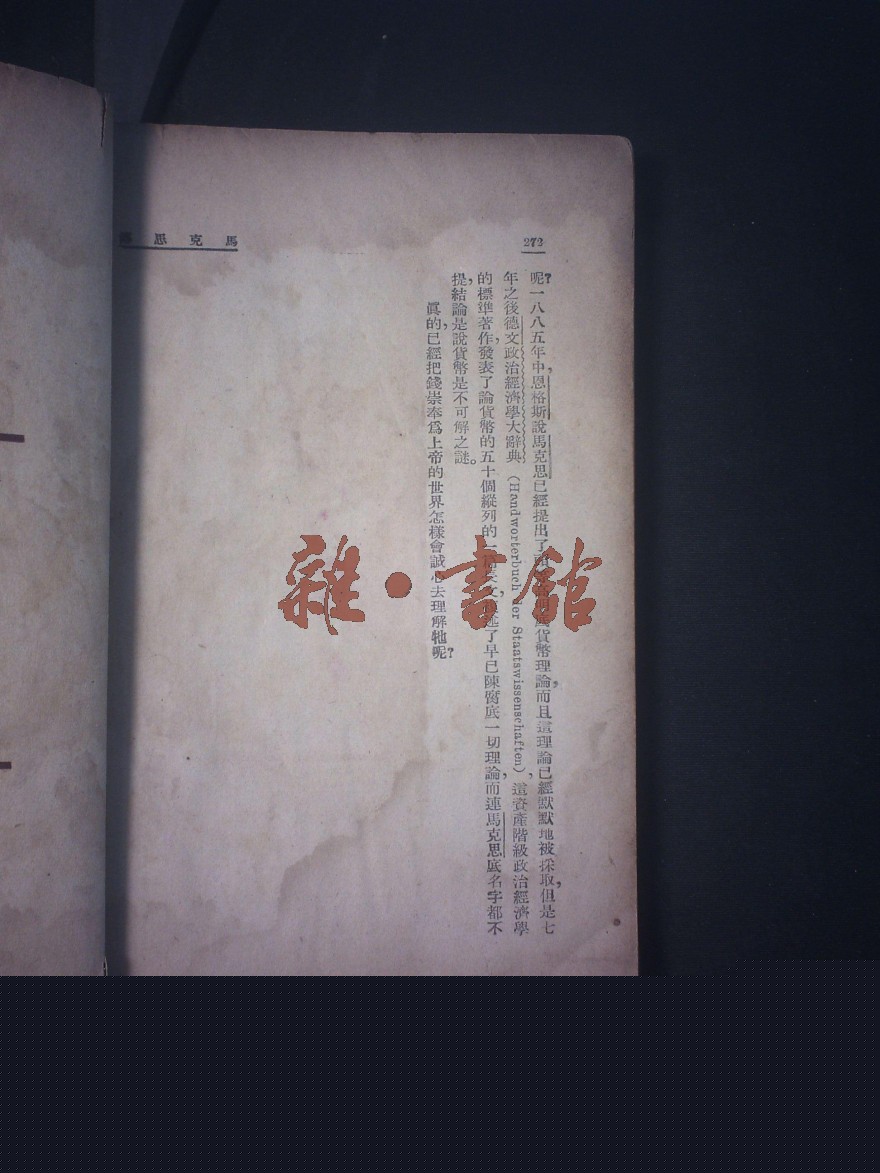 馬克思
272
呢?一八八五年中,恩格斯說馬克思已經提出了貨幣理論,而且這理論已經默默地被採取,但是七
年之後德文政治經濟學大辭典(Handworterbuch der Staatswissenschaften),這資產階級政治經濟學
的標準著作,發表了論貨幣的五十個縱列的一長文,述了早已陳腐底一切理論,而連馬克思底名字都不
提,結論是說貨幣是不可解之謎。
眞的,已經把錢崇奉爲上帝的世界怎樣會誠心去理解牠呢?
雜·書館